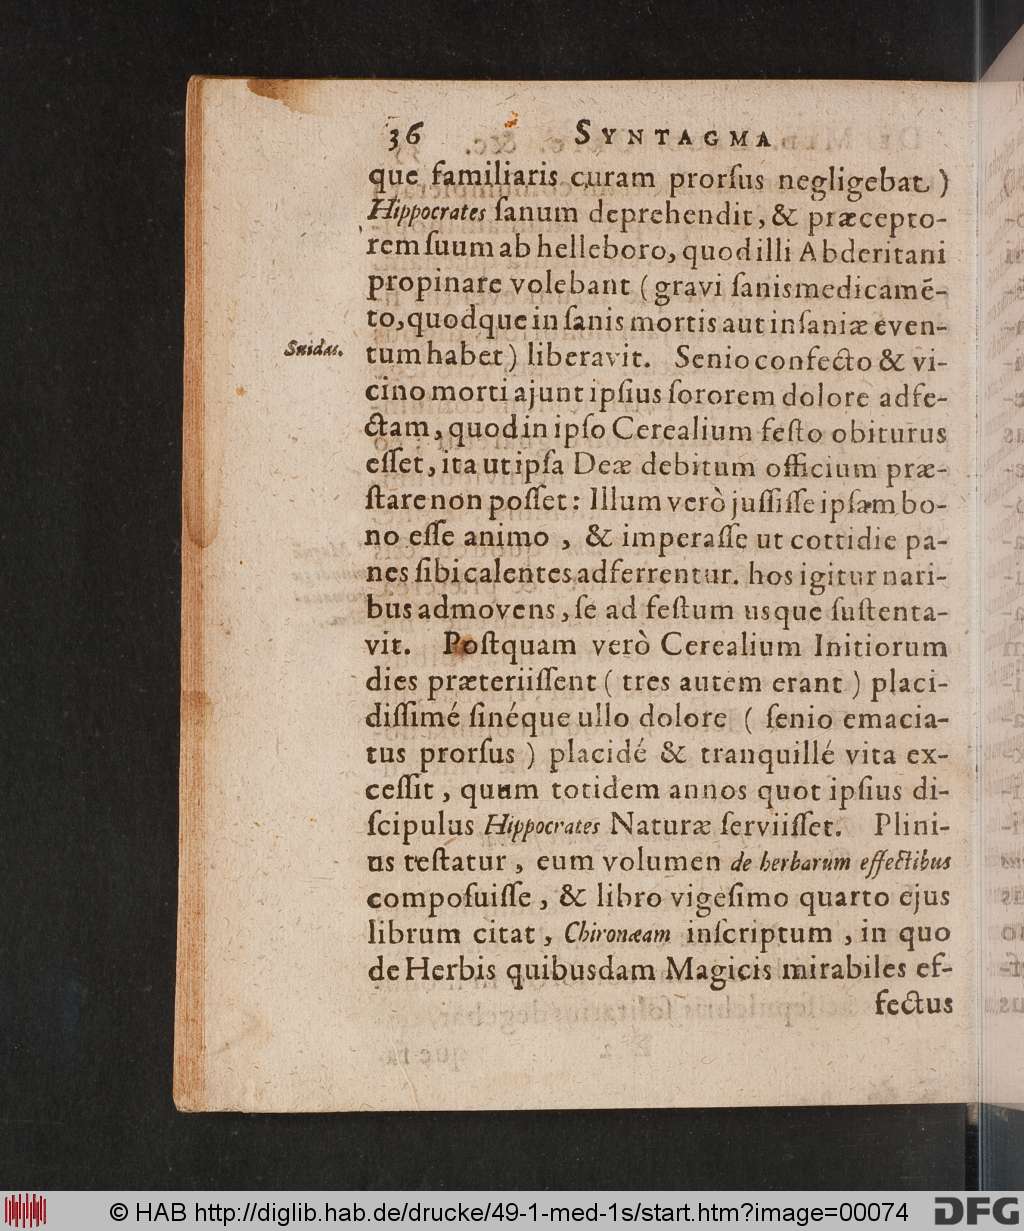 36 SYNTAGMA
que familiaris curam prorſus negligebat )
Hippocrates ſanum deprehendit, & præcepto-
rem ſuum ab helleboro, quod illi Abderitani
propinare volebant ( gravi ſanis medicamē-
to, quodque in ſanis mortis aut inſaniæ even-
Suidas.
tum habet ) liberavit. Senio confecto & vi-
cino morti ajunt ipſius ſororem dolore adfe-
ctam, quod in ipſo Cerealium feſto obiturus
eſſet, ita ut ipſa Deæ debitum officium præ-
ſtare non poſſet: Illum verò juſſiſſe ipſam bo-
no eſſe animo, & imperaſſe ut cottidie pa-
nes ſibi calentes adferrentur. hos igitur nari-
bus admovens, ſe ad feſtum usque ſuſtenta-
vit. Poſtquam verò Cerealium Initiorum
dies præteriiſſent ( tres autem erant ) placi-
diſſimé ſinéque ullo dolore ( ſenio emacia-
tus prorſus ) placidé & tranquillé vita ex-
ceſſit, quum totidem annos quot ipſius di-
ſcipulus Hippocrates Naturæ ſerviiſſet. Plini-
us teſtatur, eum volumen de herbarum effectibus
compoſuiſſe, & libro vigeſimo quarto ejus
librum citat, Chironæam inſcriptum, in quo
de Herbis quibusdam Magicis mirabiles ef-
fectus
© HAB http://diglib.hab.de/drucke/49-1-med-1s/start.htm?image=00074
DFG